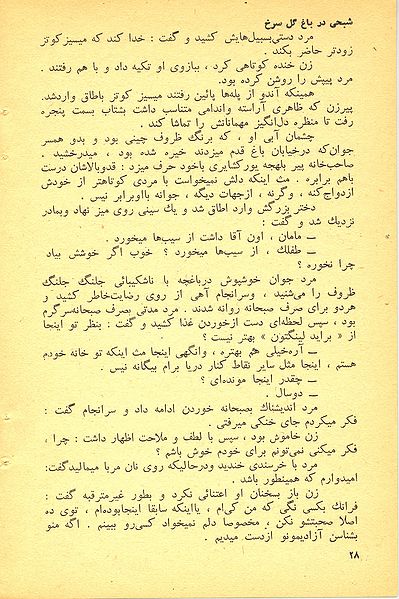 شبحی در باغ گل سرخ
مرد دستی‌بسبیل‌هایش کشید و گفت : خدا کند که میسیز کوتز
زودتر حاضر بکند .
زن خنده کوتاهی کرد ، ببازوی او تکیه داد و با هم رفتند .
مرد پیپش را روشن کرده بود.
همینکه آندو از پله‌ها پائین رفتند میسیز کوتز باطاق واردشد.
پیرزن که ظاهری آراسته واندامی متناسب داشت بشتاب بسمت پنجره
رفت تا منظره دل‌انگیز مهمانانش را تماشا کند .
چشمان آبی او ، که برنگ ظروف چینی بود و بدو همسر
جوان‌که درخیابان باغ قدم میزدند خیره شده بود ، میدرخشید .
صاحب‌خانه پیر بلهجه یورکشایری باخود حرف میزد : قدوبالاشان درست
باهم برابره . مث اینکه دلش نمیخواست با مردی کوتاهتر از خودش
ازدواج‌کنه ، وگرنه ، ازجهات دیگه ، جوانه بااوبرابر نیس .
دختر بزرگش وارد اطاق شد و یك سینی روی میز نهاد وبمادر
نزدیك شد و گفت :
ــ مامان ، اون آقا داشت از سیب‌ها میخورد .
ــ طفلك ، از سیب‌ها میخورد ؟ خوب اگر خوشش بیاد
چرا نخوره ؟
مرد جوان خوشپوش درباغچه با ناشکیبائی جلنگ جلنگ
ظروف را می‌شنید ، وسرانجام آهی از روی رضایت‌خاطر کشید و
هردو برای صرف صبحانه روانه شدند . مرد مدتی بصرف صبحانه‌سرگرم
بود ، سپس لحظه‌ای دست ازخوردن غذا کشید و گفت : بنظر تو اینجا
از « براید لینگتون » بهتر نیست ؟
ــ آره‌خیلی هم بهتره ، وانگهی اینجا مث اینکه تو خانه خودم
هستم ، اینجا مثل سایر نقاط کنار دریا برام بیگانه نیس .
ــ چقدر اینجا مونده‌ای ؟
ــ دوسال .
مرد اندیشناك بصبحانه خوردن ادامه داد و سرانجام گفت :
فکر میکردم جای خنکی میرفتی .
زن خاموش بود ، سپس با لطف و ملاحت اظهار داشت : چرا ،
فکر میکنی نمی‌تونم برای خودم خوش باشم ؟
مرد با خرسندی خندید ودرحالیکه روی نان مربا میمالیدگفت:
امیدوارم که همینطور باشد .
زن باز بسخنان او اعتنائی نکرد و بطور غیرمترقبه گفت :
فرانك بکسی نگی که من کی‌ام ، یااینکه سابقا اینجابوده‌ام ، توی ده
اصلا صحبتشو نکن ، مخصوصا دلم نمیخواد کسی‌رو ببینم . اگه منو
بشناسن آزادیمونو ازدست میدیم .
۲۸